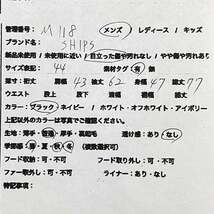 管理番号: M 118 メンズ / レディース / キッズ
ブランド名: SHIPS
新品未使用 / 未使用に近い / 目立った傷や汚れなし / やや傷や汚れ
サイズ表記: 44 素材タグ 有 無
採寸: 裄丈 肩幅 43 袖丈 62 身幅 47 着丈 77
ウエスト 股上 股下 裾幅
カラー: ブラック ネイビー / ホワイト・オフホワイト・アイボリー
生地: 薄手・普通・厚手・裏起毛 透け感: あり・なし
季節感: 春・夏・秋・冬 (複数選択可)
フード収納: 可・不可 フード取り外し: 可・不可
ファー取外し: 可・不可 ライナー: あり・なし
特記事項: